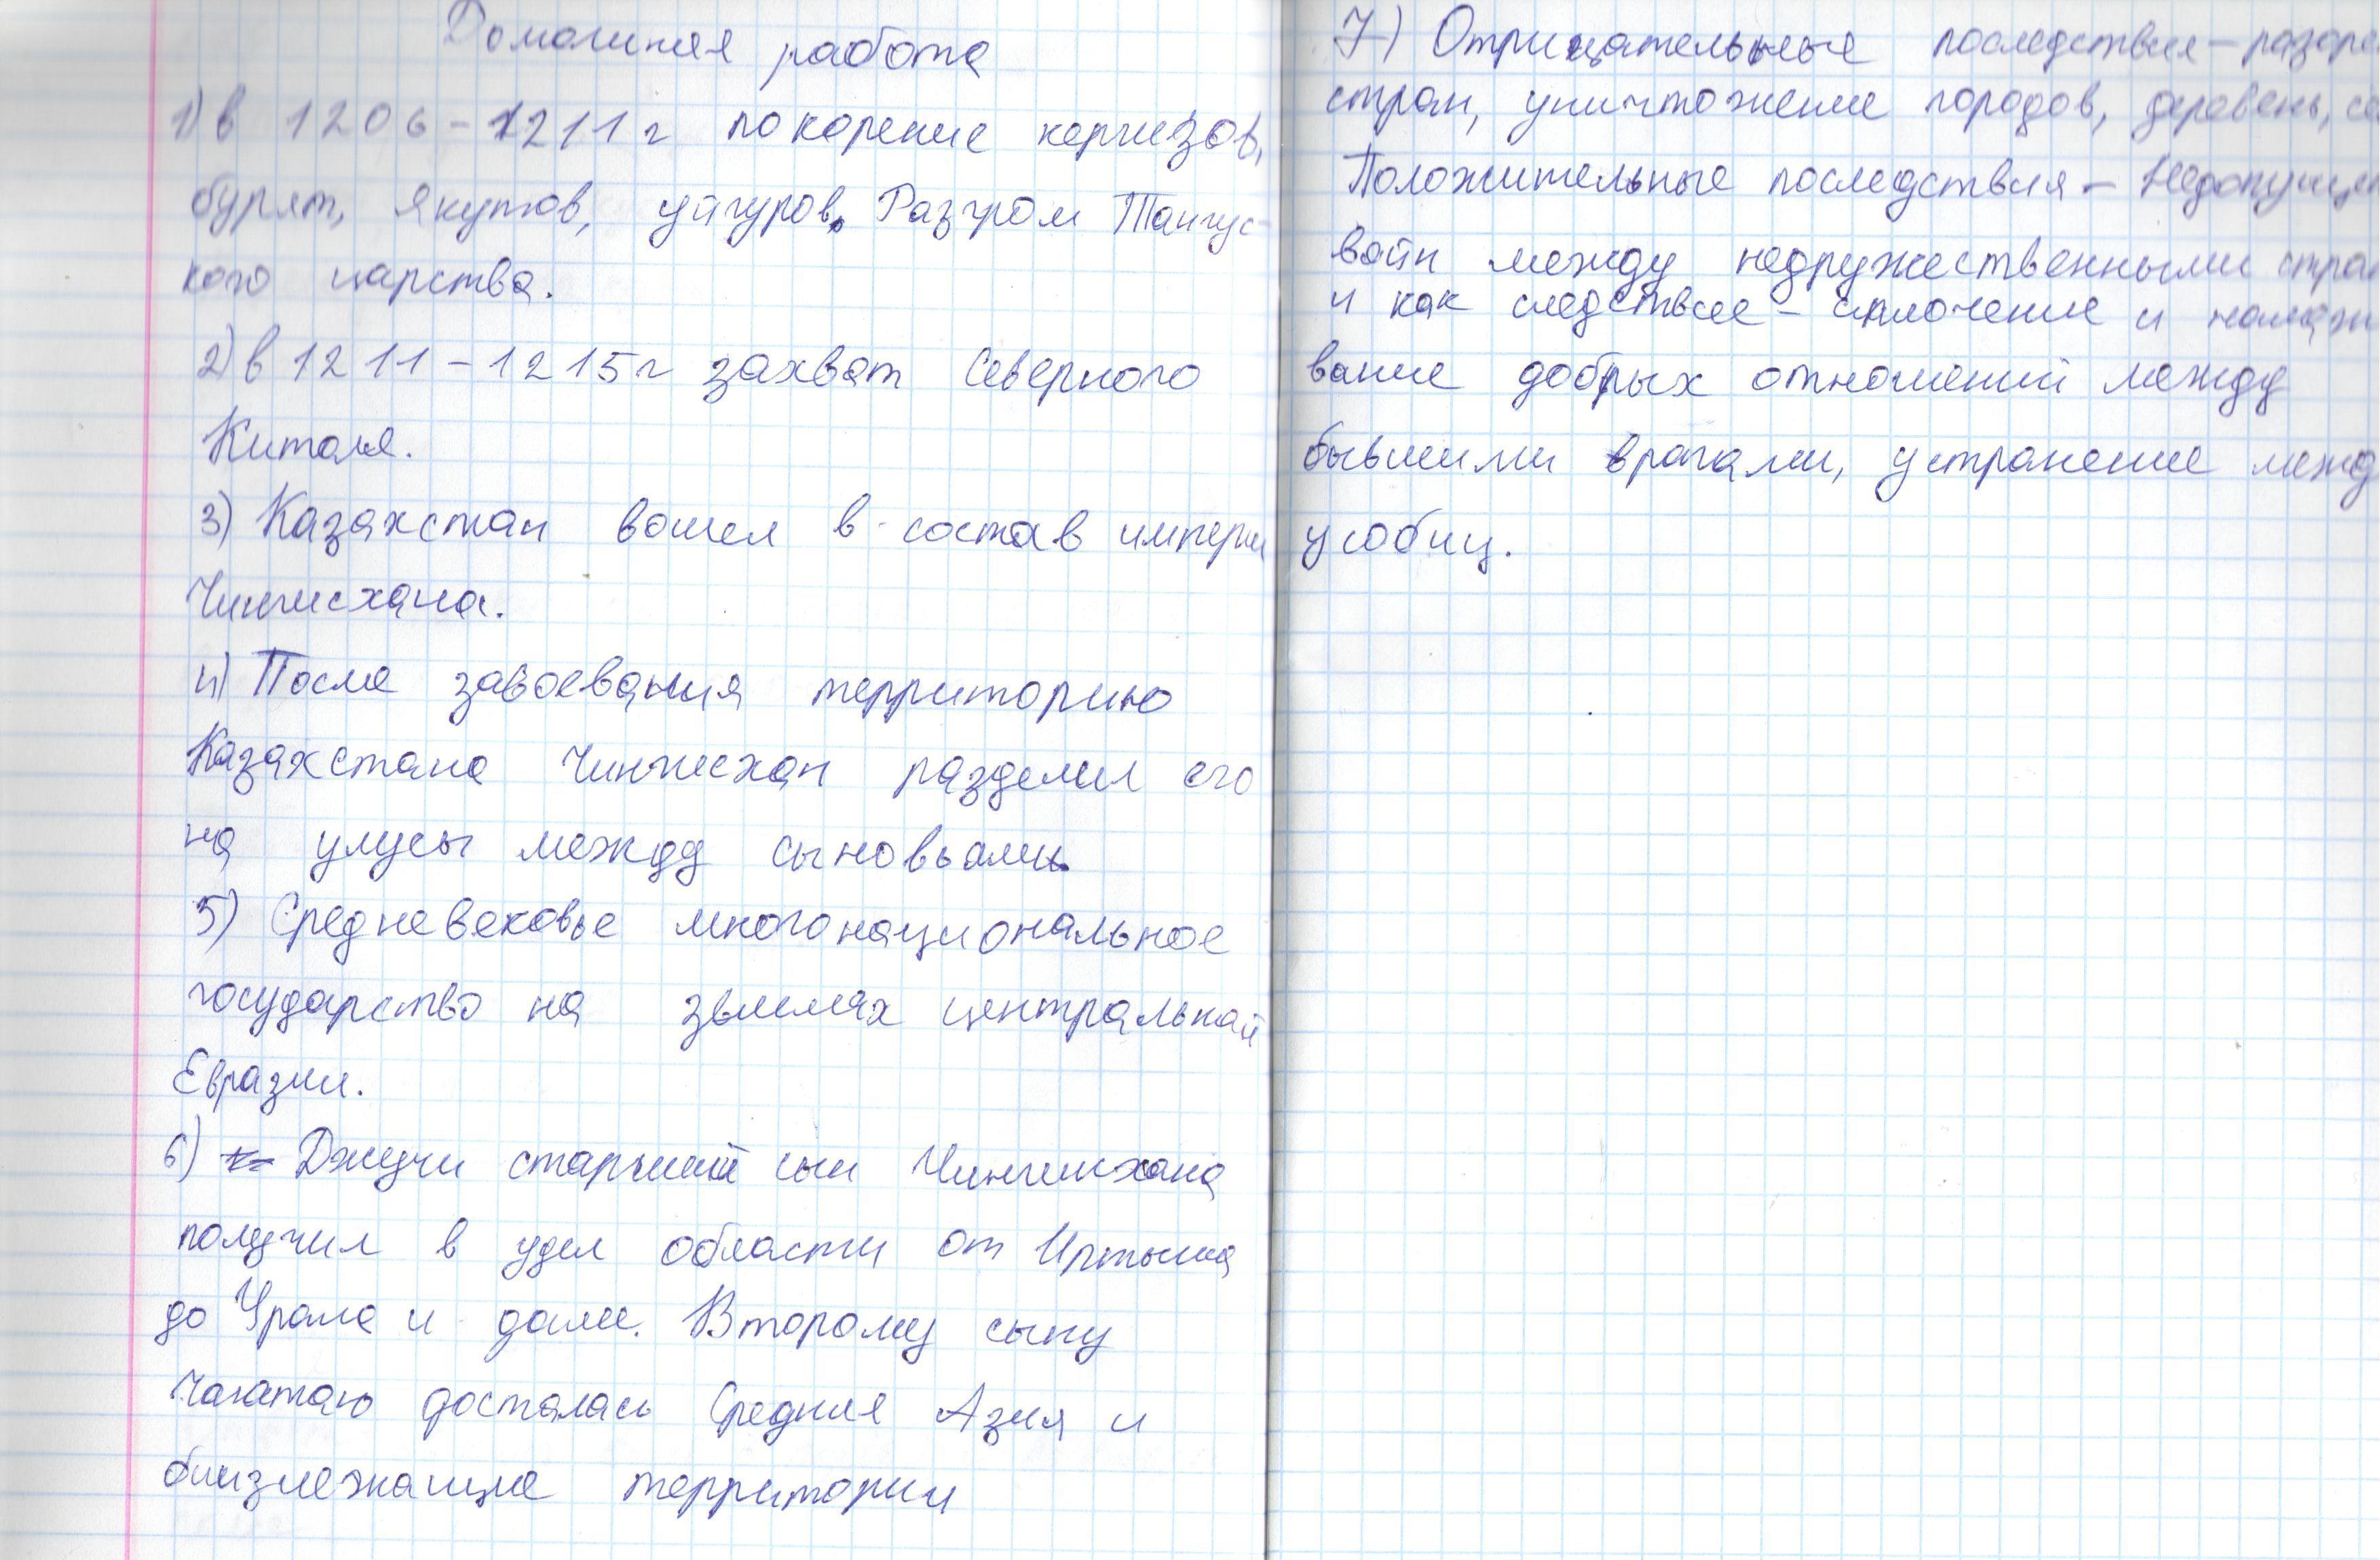 Домашняя работа
1) в 1206-1211г покорение кергизов,
бурят, якутов, уйгуров. Разгром Тангус-
кого царства.
2) в 1211-1215г захват Северного
Китая.
3) Казахстан вошел в состав империи
Чингисхана.
4) После завоевания территорию
Казахстана Чингисхан разделил его
на улусы между сыновьями.
5) Средневековье многонациональное
государство на звемлях центральной
Евразии.
6) Джучи старший сын Чингисхана
получил в удел области от Иртыша
до Урала и дали. Второму сыну
Чагатаю досталась Средняя Азия и
близлежащие территории
7) Отрицательные последствия – разоре
стран, уничтожение городов, деревень, се
Положительные последствия – Недопущен
войн между недружественными стран
и как следствие – сплочение и налажи
вание добрых отношений между
бывшими врагами, устранение межд
усобиц.